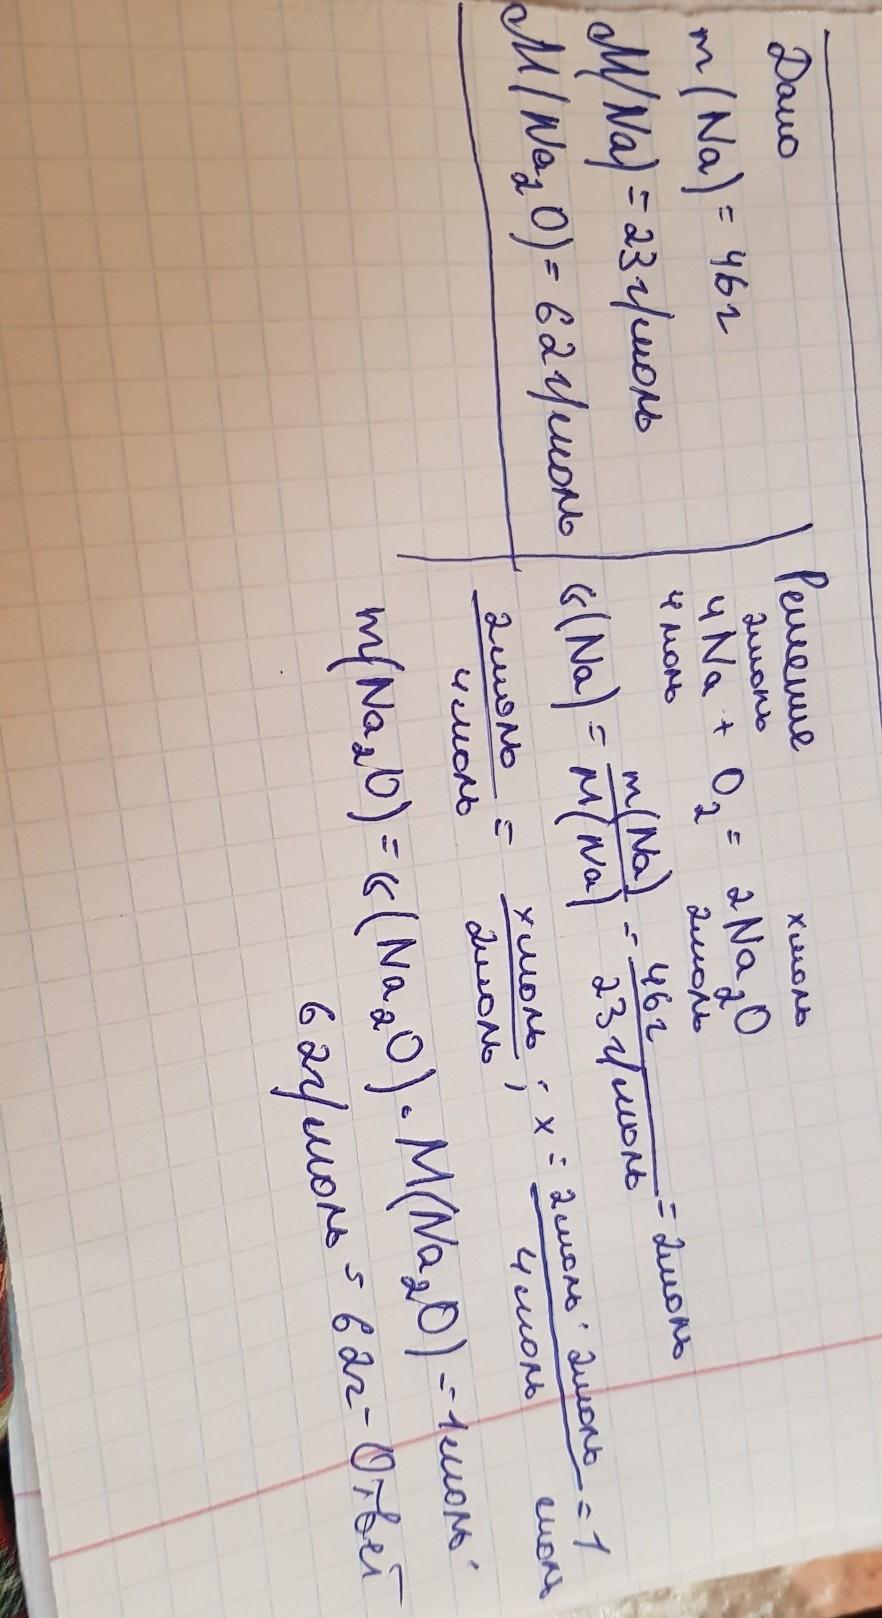 Дано
m(Na) = 46г
M(Na) = 23г/моль
M(Na₂O) = 62г/моль
Решение
2моль хмоль
4Na + O₂ = 2Na₂O
4моль 2моль
υ(Na) = m(Na)/M(Na) = 46г/23г/моль = 2моль
2моль/4моль = хмоль/2моль; х = 2моль · 2моль/4моль = 1 моль
m(Na₂O) = υ(Na₂O) · M(Na₂O) = 1моль ·
62г/моль = 62г - Ответ